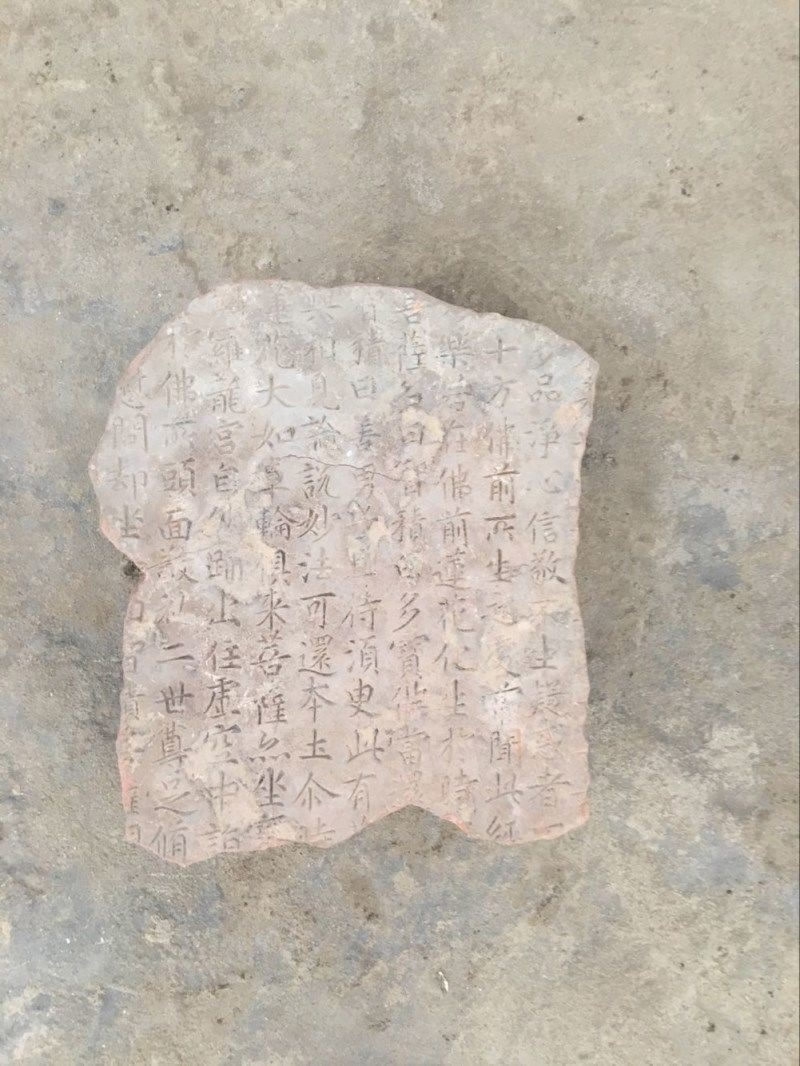 品淨心信敬不生疑惑者
十方佛前所生之處常聞此經
樂若在佛前蓮花化生於時
菩薩名曰智積白多寶佛當
積曰善男子且待須臾此有
與相見論說妙法可還本土尒時
蓮花大如車輪俱來菩薩亦坐寶
龍宮自然踊出住虛空中詣
佛所頭面敬礼二世尊足脩
慰問却坐